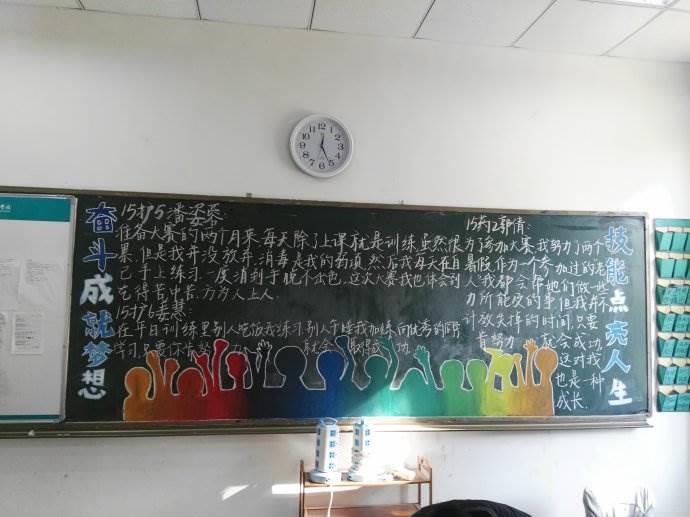 奋斗成就梦想
15护5潘姿蓉:
准备大赛的两个月来,每天除了上课就是训练虽然很
果,但是我并没放弃,消毒是我的药项,然后我每天在自
己手上练习,一度消到手脱个出色,这次大赛我也体会到
吃得苦中苦,方为人上人。
15护6娄慧:
在平日训练里别人吃饭我练习,别人午睡我加练向优秀的同
学习,只要你肯努 就会取得成功
15药2郭倩:
为了参加大赛,我努力了两个
暑假作为一个参加过的老
人我都会帮他们做一些
力所能及的事但我并不
计放失掉的时间,只要
肯努力 就会成功
这对我
也是一种
成长.
技能点亮人生